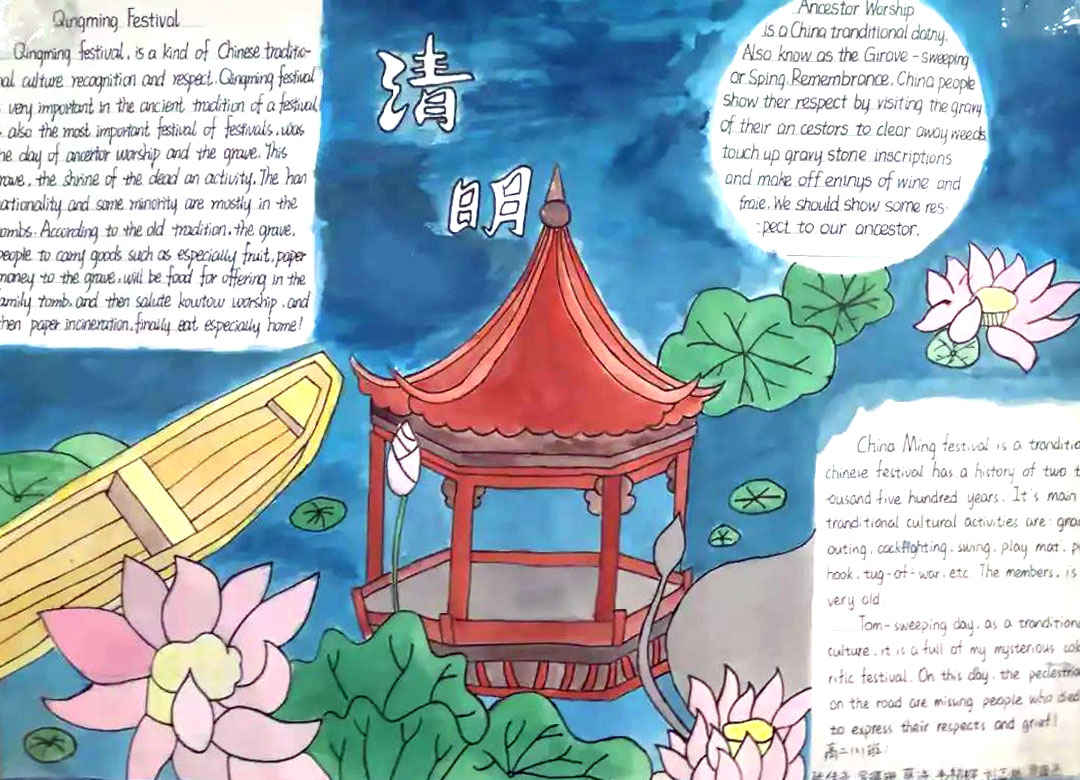 Qingming Festival
Qingming festival, is a kind of Chinese traditio-
nal culture recognition and respect. Qingming festival
very important in the ancient tradition of a festival,
also the most important festival of festivals, was
he day of ancertor worship and the grave. This
rave, the shrine of the dead an activity. The han
ationality and some minority are mostly in the
ombs. According to the old tradition, the grave,
people to carry goods such as especially fruit, paper
money to the grave, will be food for offering in the
amily tomb, and then salute kowtow worship, and
hen paper incineration, finally eat especially home!
清
明
Ancestor Worship
is a China tranditional datny.
Also know as the Girove - sweeping
or Sping. Remembrance. China people
show ther respect by visiting the gravy
of their an cestors to clear away weeds,
touch up gravy stone inscriptions
and make off enings of wine and
fraie. We should show some res-
pect to our ancestor.
China Ming festival is a tranditio
chinese festival has a history of two t
ousand five hundred years. It's main
tranditional cultural activities are: grav
outing, cockfighting, swing, play mat, p
hook, tug-of-war, etc. The members, is
very old.
Tom-sweeping day, as a trandition
culture, it is a full of my mysterious col
rific festival. On this day, the peclestria
on the road are missing people who died
to express their respects and grief!
高二（1）班：